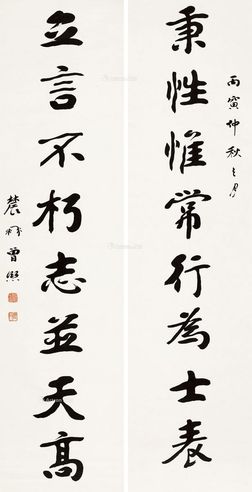 丙寅仲秋之月
秉性惟常行為士表
立言不朽志並天高
農髯曾熙